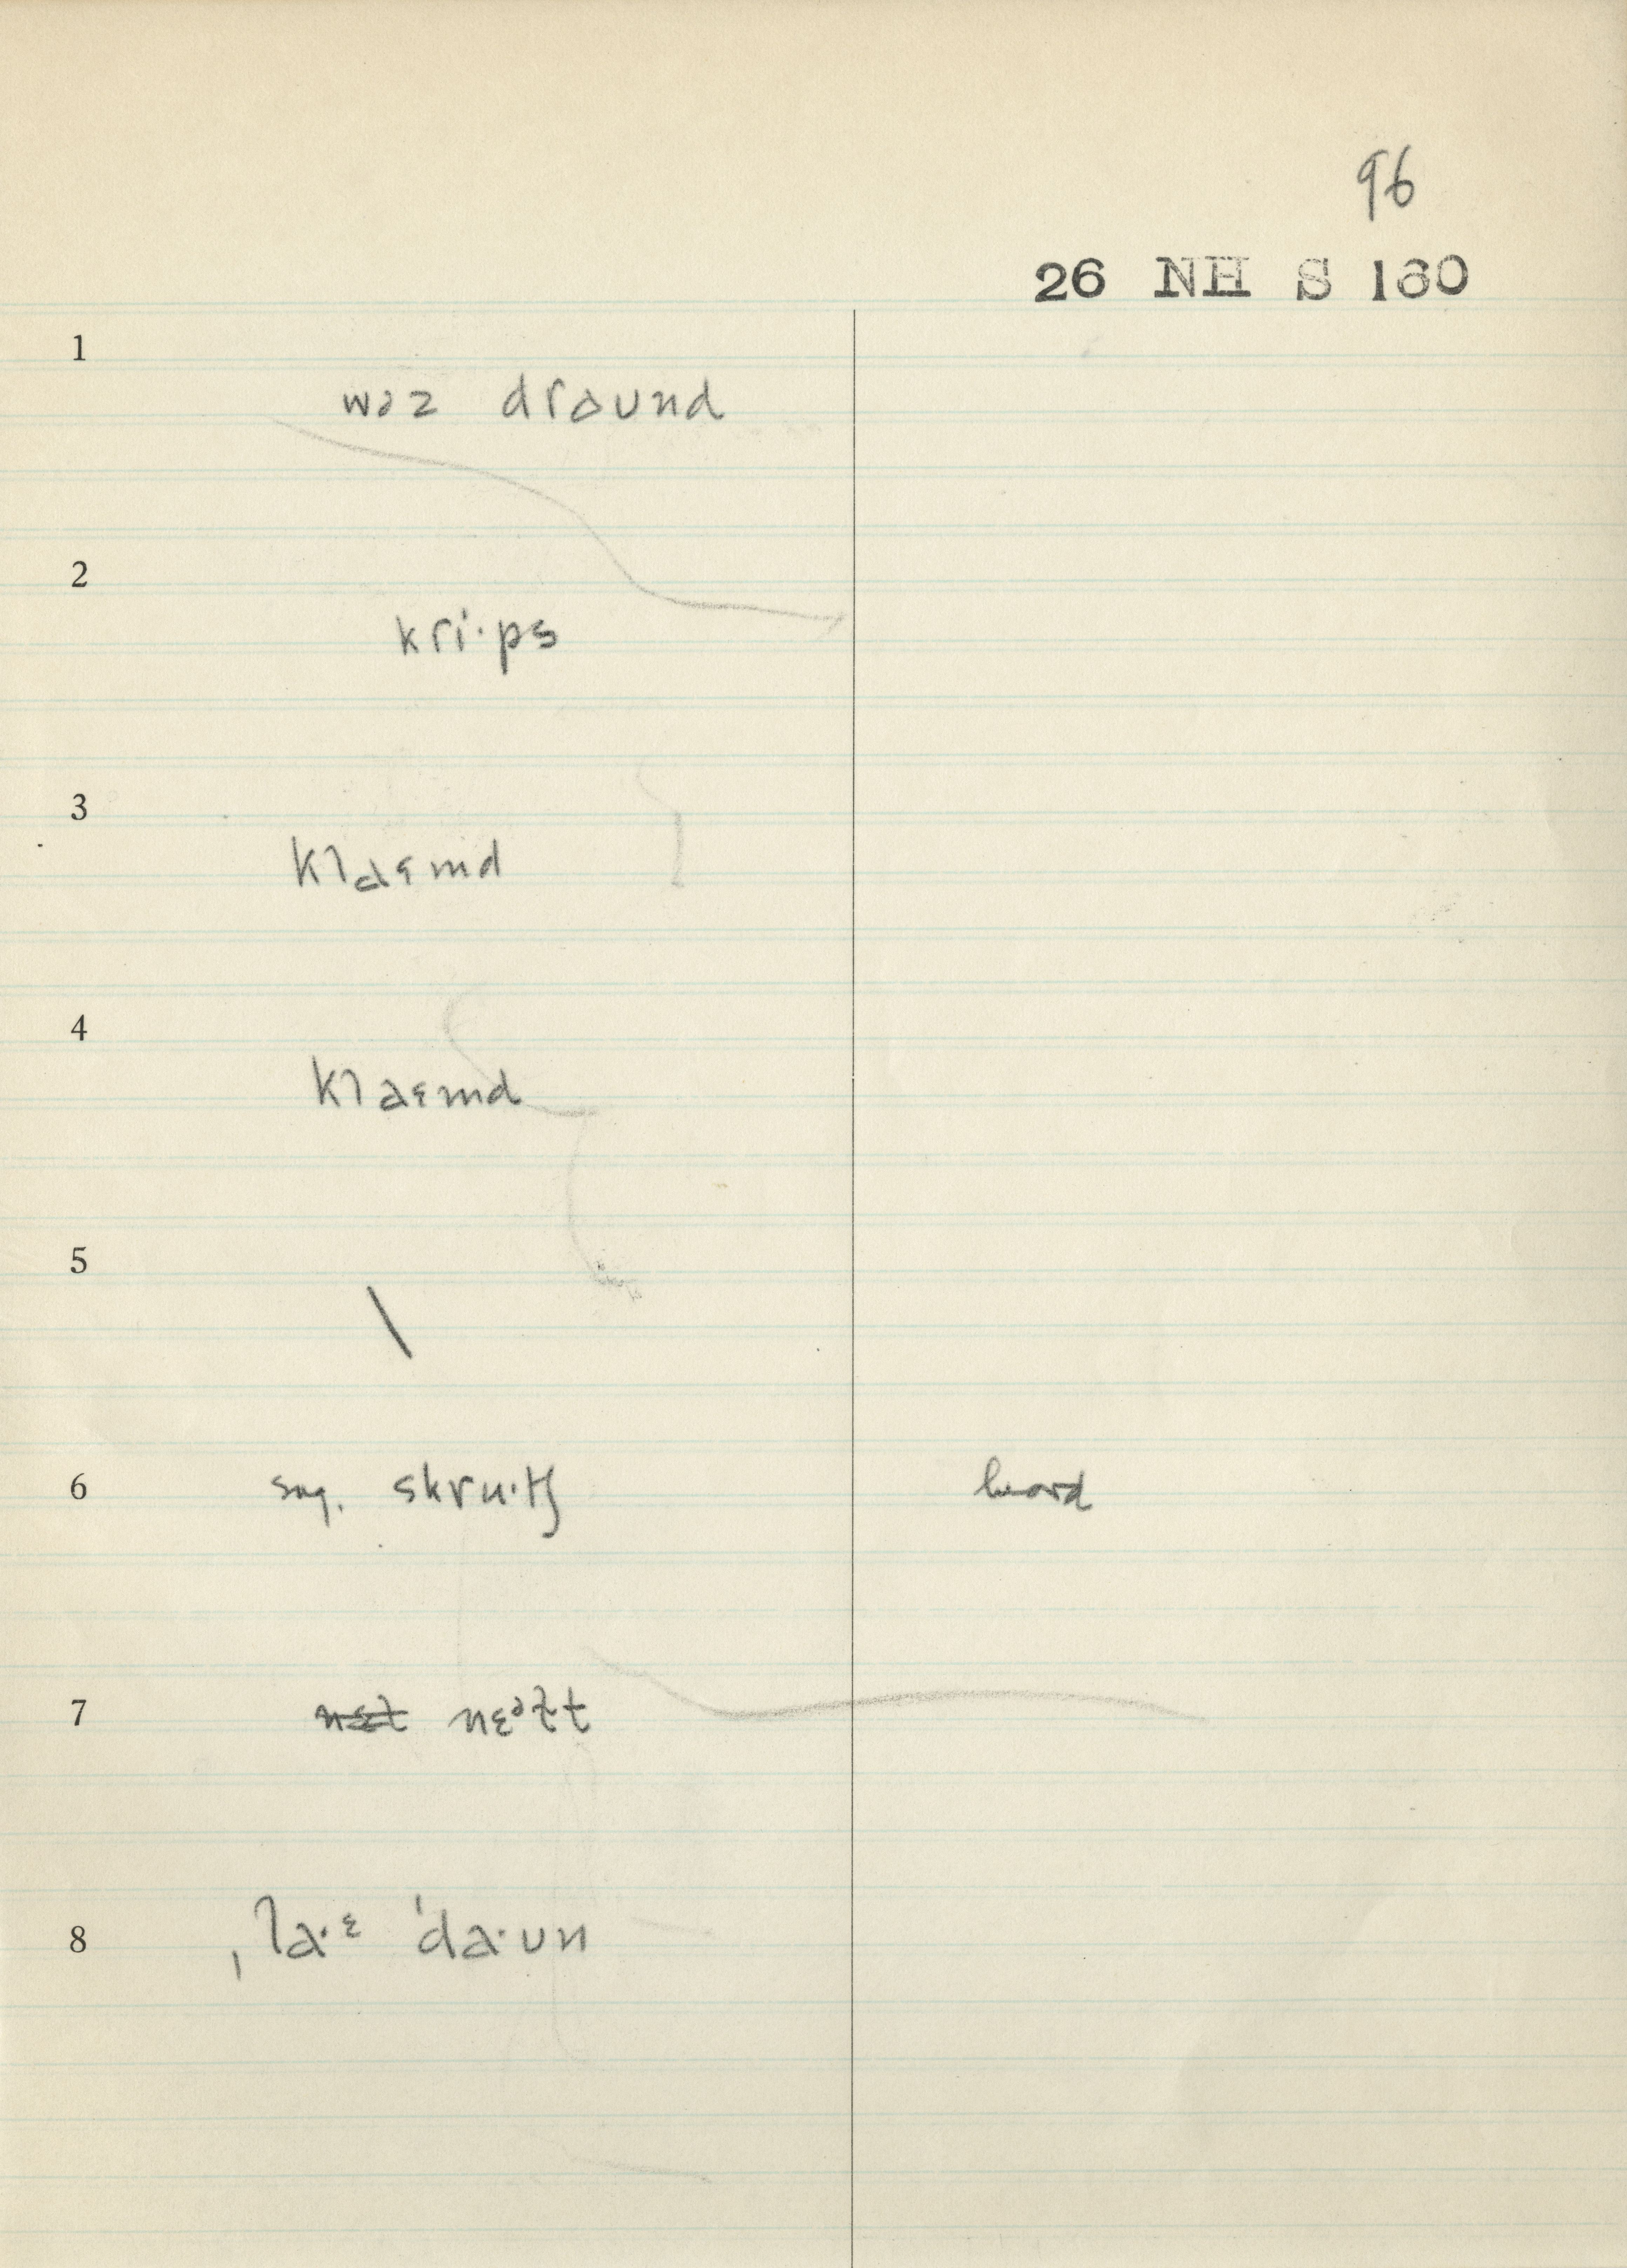 96
26 NH S 160
1
wəz draund
2
kri·ps
3
klaɛmd
4
klaɛmd
5
\
6 sug. skru·tʃ heard
7 nɛt nɛᵊt̬t
8 ˌla·ᵋ ˈda·un